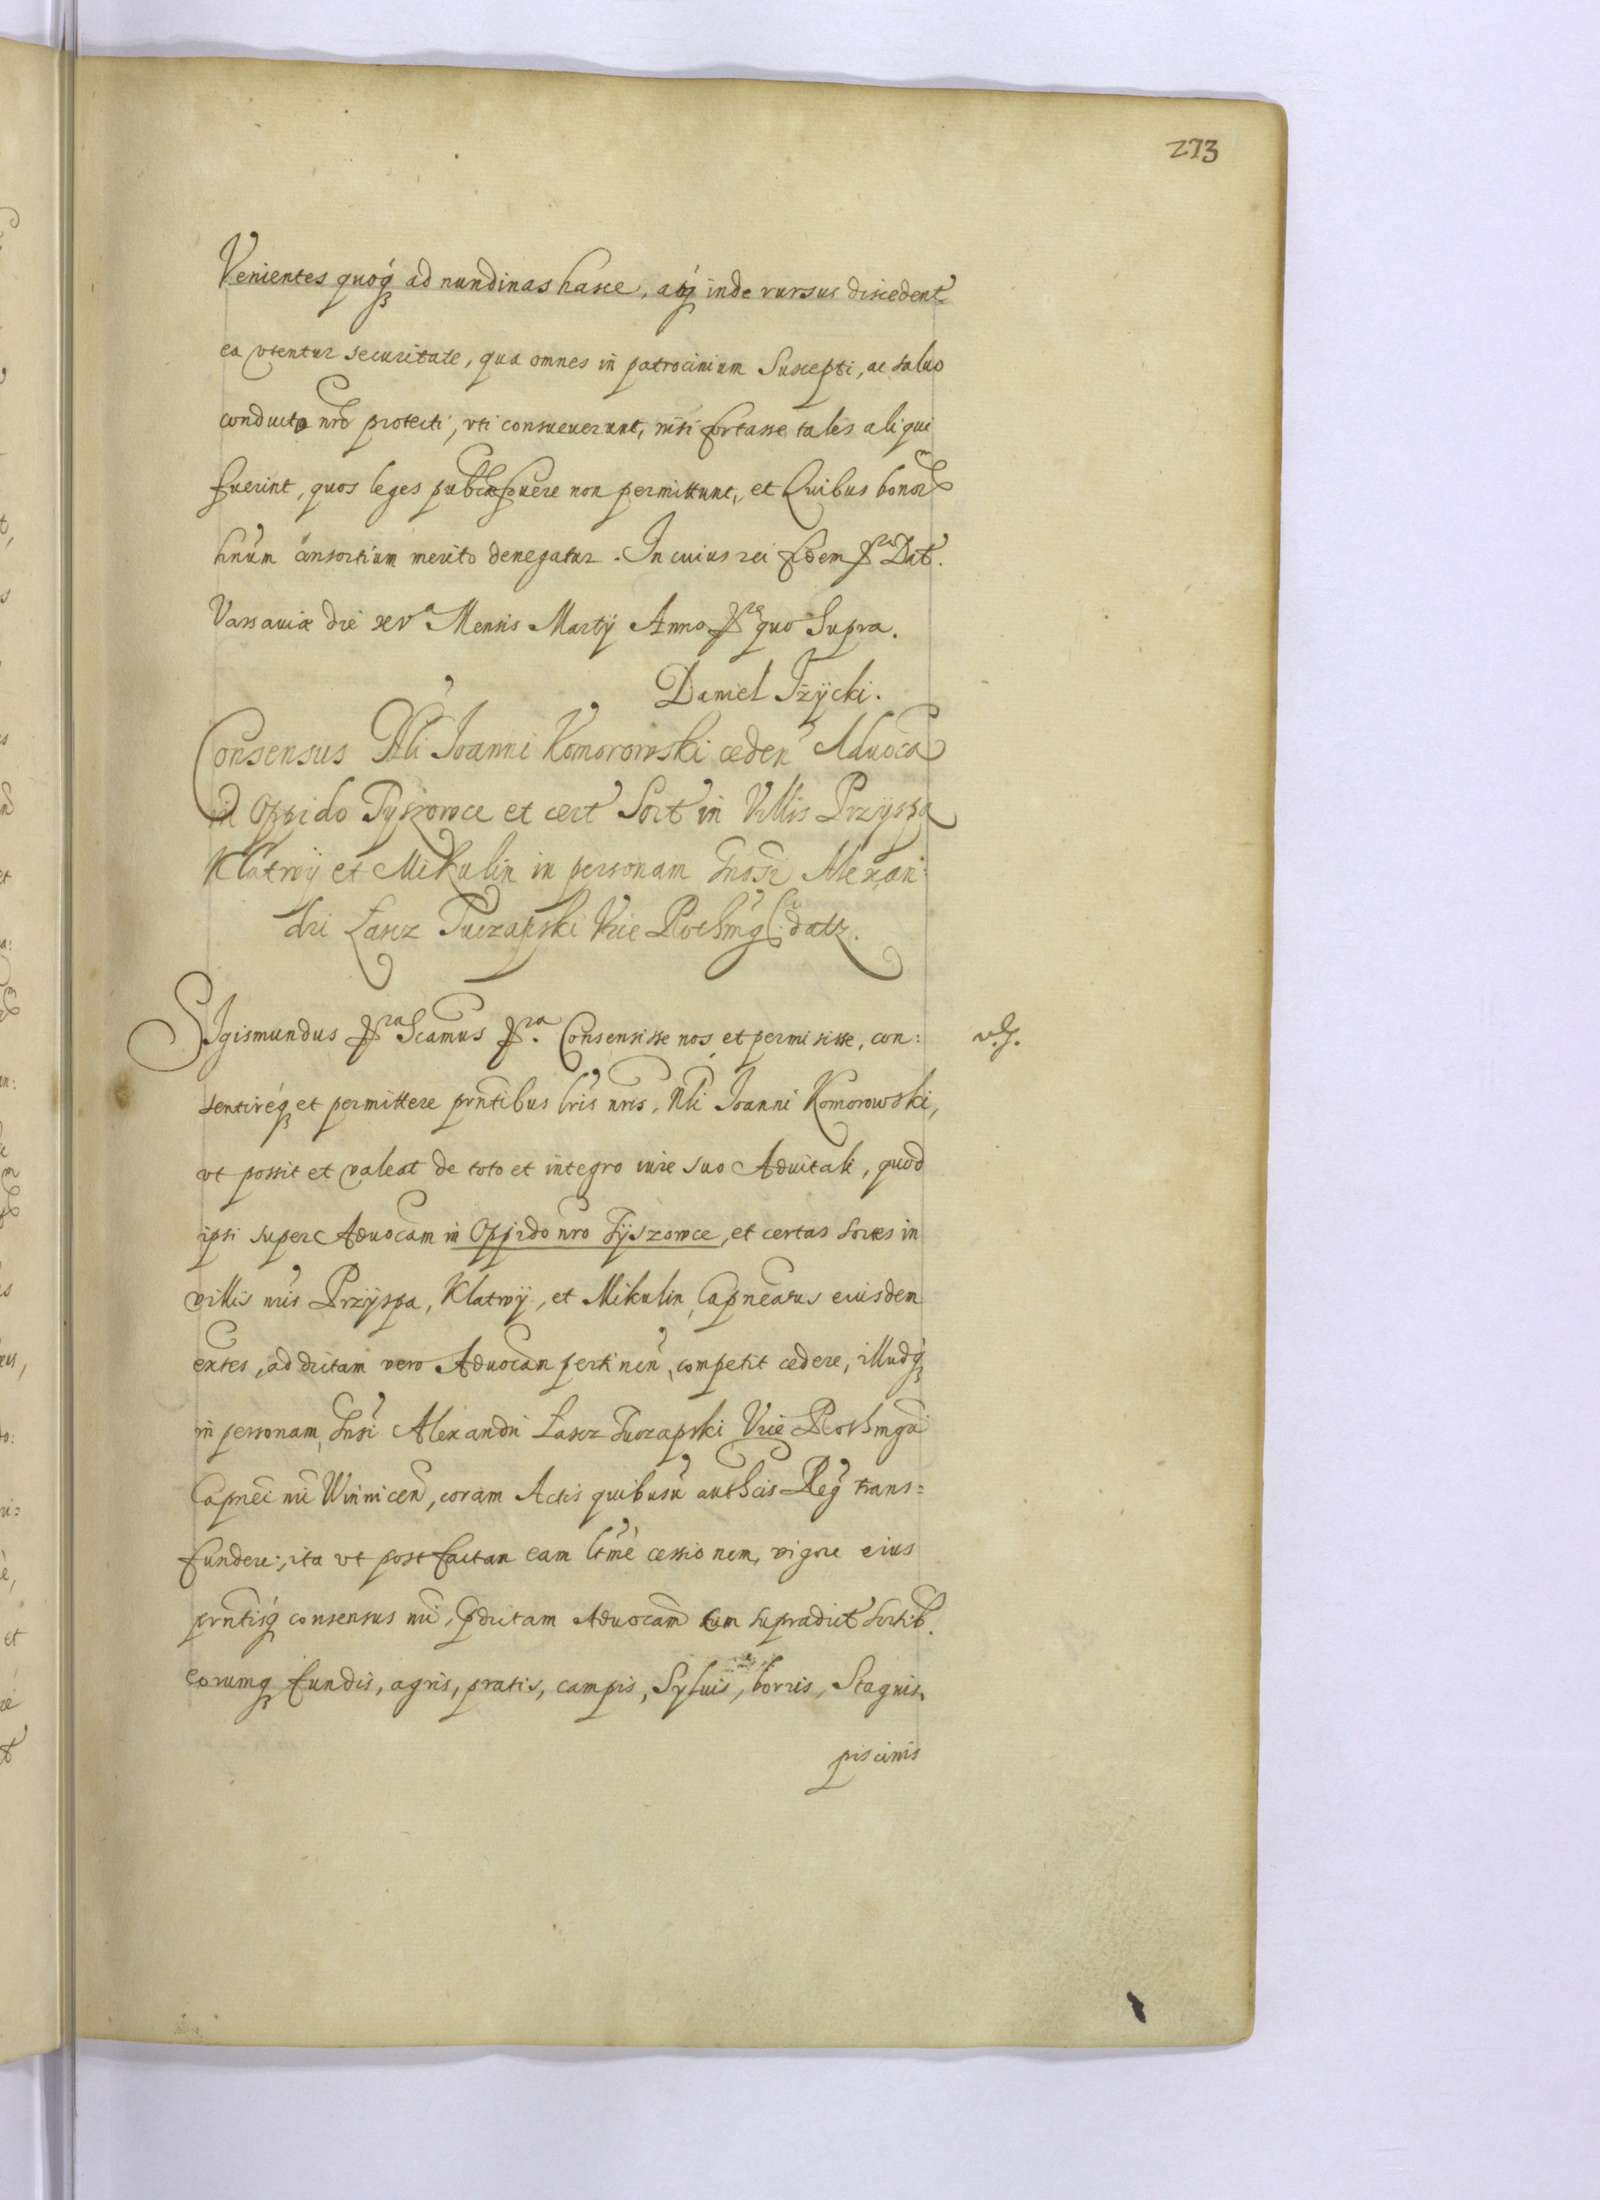 273
Venientes quoq́ ad nundinas hasce, atq́ inde rursus discedent
ea vtentur securitate, qua omnes in patrocinium Suscepti, ac saluo
conductu nr̃o protecti, vti consueuerunt, nisi fortasse tales aliqui
fuerint, quos leges publicæ fouere non permittunt, et Quibus bonor
hnum consortium merito denegatur. In cuius rei fidem Dat.
Varsauiæ die xvᵃ Mensis Martij Anno quo Supra.
Daniel Iżycki.
Consensus Nli Joanni Komorowski ceden Aduoca
in Oppido Tyszowce et cert Sort in Villis Przyspa
Klatwy et Mikulin in personam Gnosi Alexan:
dri Łascz Tuczapski Vice Rothmg datr.
SIgismundus Scamus. Consensisse nos et permisisse, con:
v.J.
sentireq́ et permittere pr̃ntibus lr̃is nr̃is, Nli Joanni Komorowski,
vt possit et valeat de toto et integro iure suo Aduitali, quod
ipsi super Aduocam in Oppido nro Tyszowce, et certas sortes in
villis nris Przyspa, Klatwy, et Mikulin, Capnearus eiusdem
extes, ad dictam vero Aduocam pertinen, competit cedere, illudq́
in personam Gnsi Alexandri Łascz Tuczapski Vice Rothmgri
Capnei nri Winnicen, coram Actis quibusu authcis Reg trans=
fundere; ita vt post factam eam ltme cessionem, vigore eius
prntisq́ consensus nri, pdictam Aduocam cum supradict sortib.
eorumq́ fundis, agris, pratis, campis, Syluis, borris, Stagnis,
piscinis